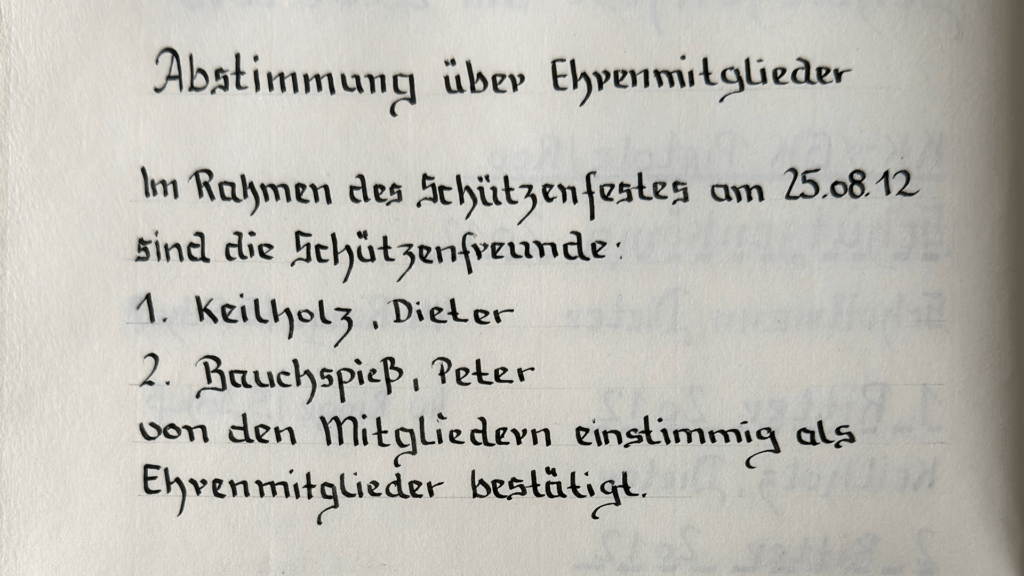 Abstimmung über Ehrenmitglieder
Im Rahmen des Schützenfestes am 25.08.12
sind die Schützenfreunde:
1. Keilholz, Dieter
2. Bauchspieß, Peter
von den Mitgliedern einstimmig als
Ehrenmitglieder bestätigt.